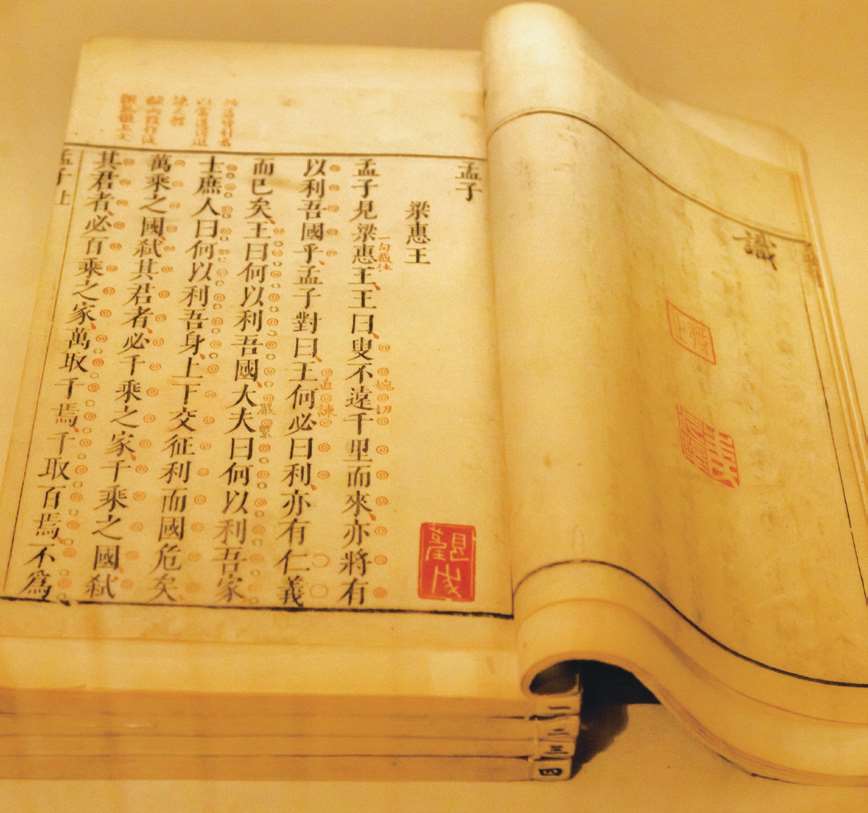 識
孟子
梁惠王
孟子見梁惠王、王曰、叟不遠千里而來、亦將有
以利吾國乎、孟子對曰、王何必曰利、亦有仁義
而已矣、王曰何以利吾國、大夫曰何以利吾家
士庶人曰何以利吾身、上下交征利而國危矣
萬乘之國弒其君者、必千乘之家、千乘之國弒
其君者、必百乘之家、萬取千焉、千取百焉、不爲
孟子 上
一
二
三
四